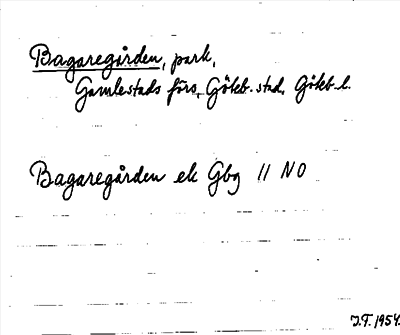 Bagaregården, park,
Gamlestads förs, Göteb. stad, Göteb. l.
Bagaregården ek Gbg 11 NO
J.F. 1954.